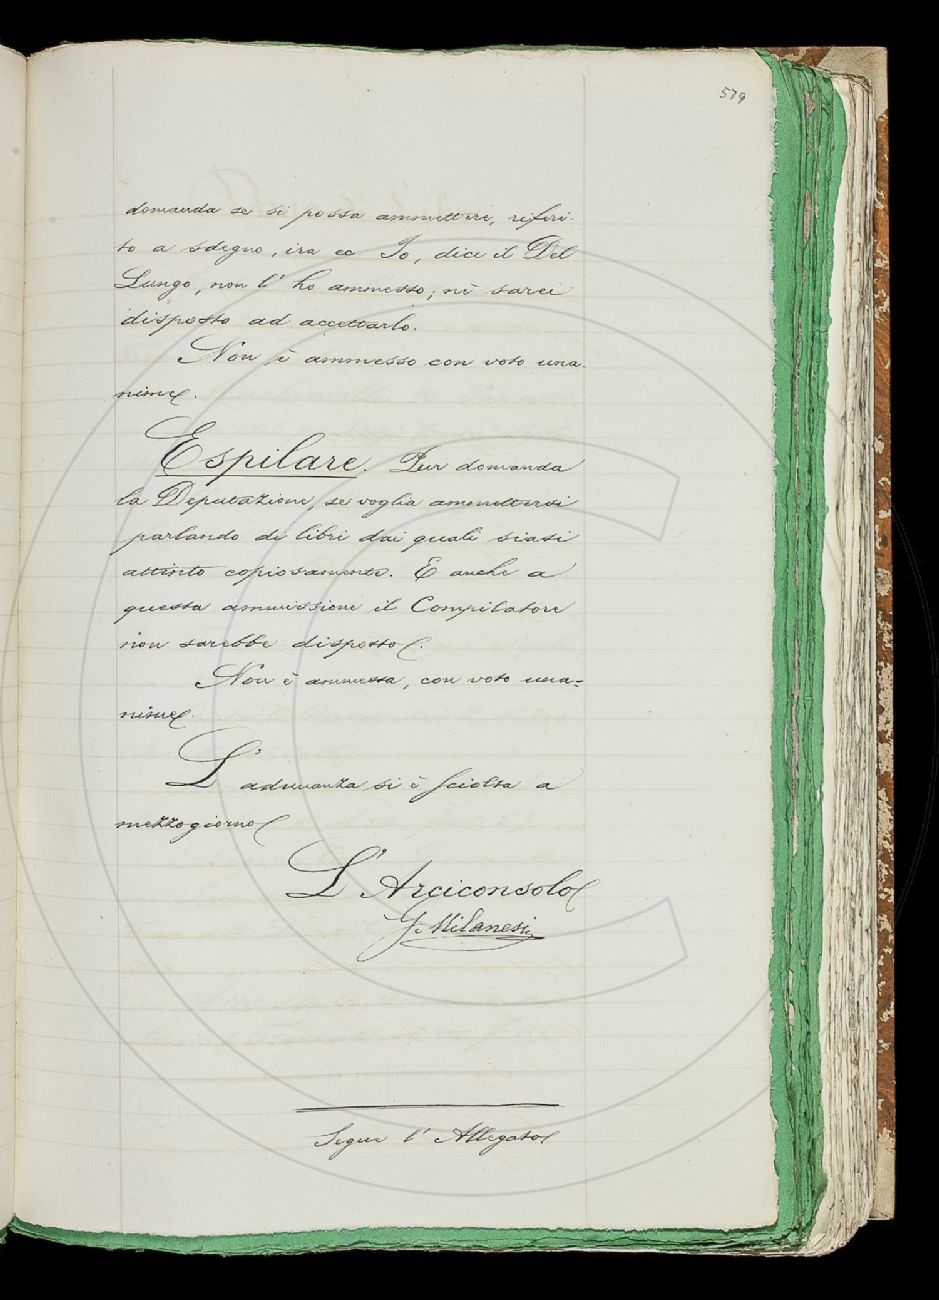 579
domanda se si possa ammettere, riferi-
to a sdegno, ira ec. Io, dice il Del
Lungo, non l' ho ammesso, nè sarei
disposto ad accettarlo.
Non è ammesso con voto una-
nime.
Espilare. Pur domanda
la Deputazione, se voglia ammettersi
parlando di libri dai quali siasi
attinto copiosamente. E anche a
questa ammissione il Compilatore
non sarebbe disposto.
Non è ammessa, con voto una=
nime.
L' adunanza si è sciolta a
mezzogiorno
L' Arciconsolo
G. Milanesi
Segue l' Allegato